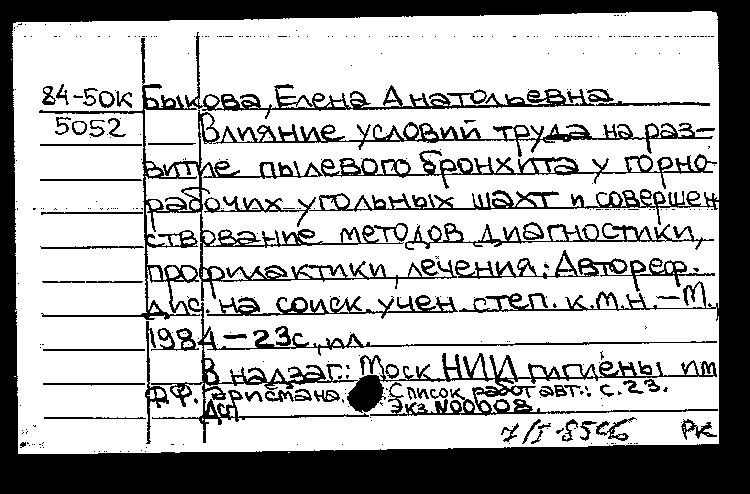 84-5ОК Быкова, Елена Анатольевна.
5052 Влияние условий труда на раз-
витие пылевого бронхита у горно-
рабочих угольных шахт и совершен
ствование методов диагностики,
профилактики, лечения: Автореф.
дис. на соиск. учен. степ. к.м.н. - М.,
1984. - 23с., ил.
В надзаг.: Моск. НИИ гигиены им
Ф.Ф. Эрисмана. Список работ авт.: с. 23.
Экз. N00008.
ДСП.
РК